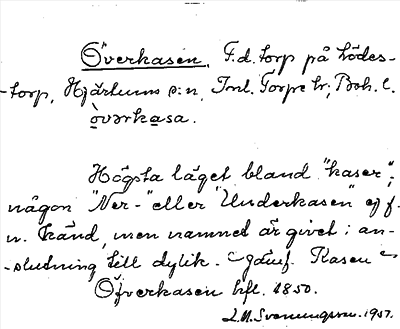 Överkasen. F.d. torp på Lödes-
-torp, Hjärtums s:n, Inl. Torpe hr; Boh. l.
òvərkasa.
Högsta läget bland "kaser";
någon "Ner-" eller "Underkasen" ej f.
n. känd, men namnet är givet i an-
-slutning till dylik. Jämf. Kasen
Öfverkasen hfl. 1850.
L.M. Svenungsson. 1957.